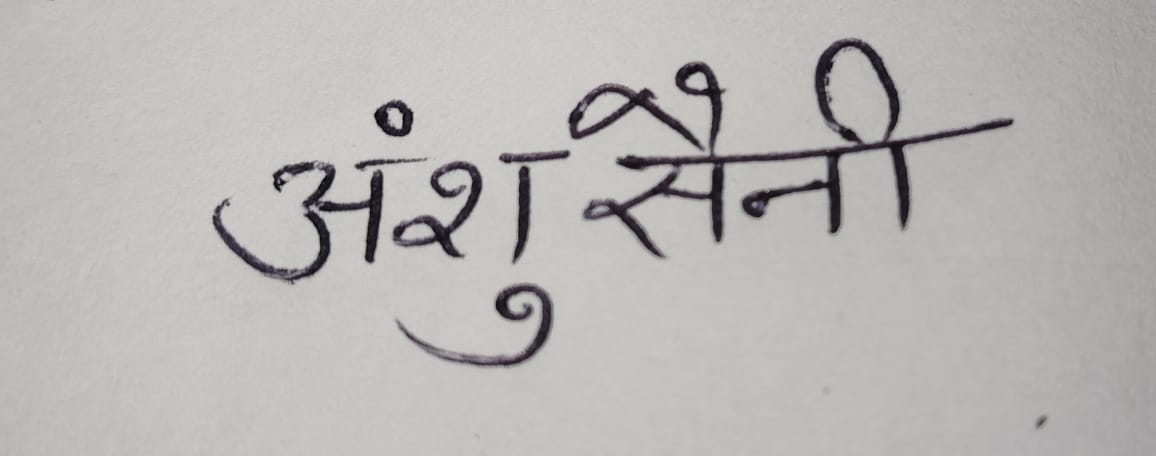 अंशु सैनी